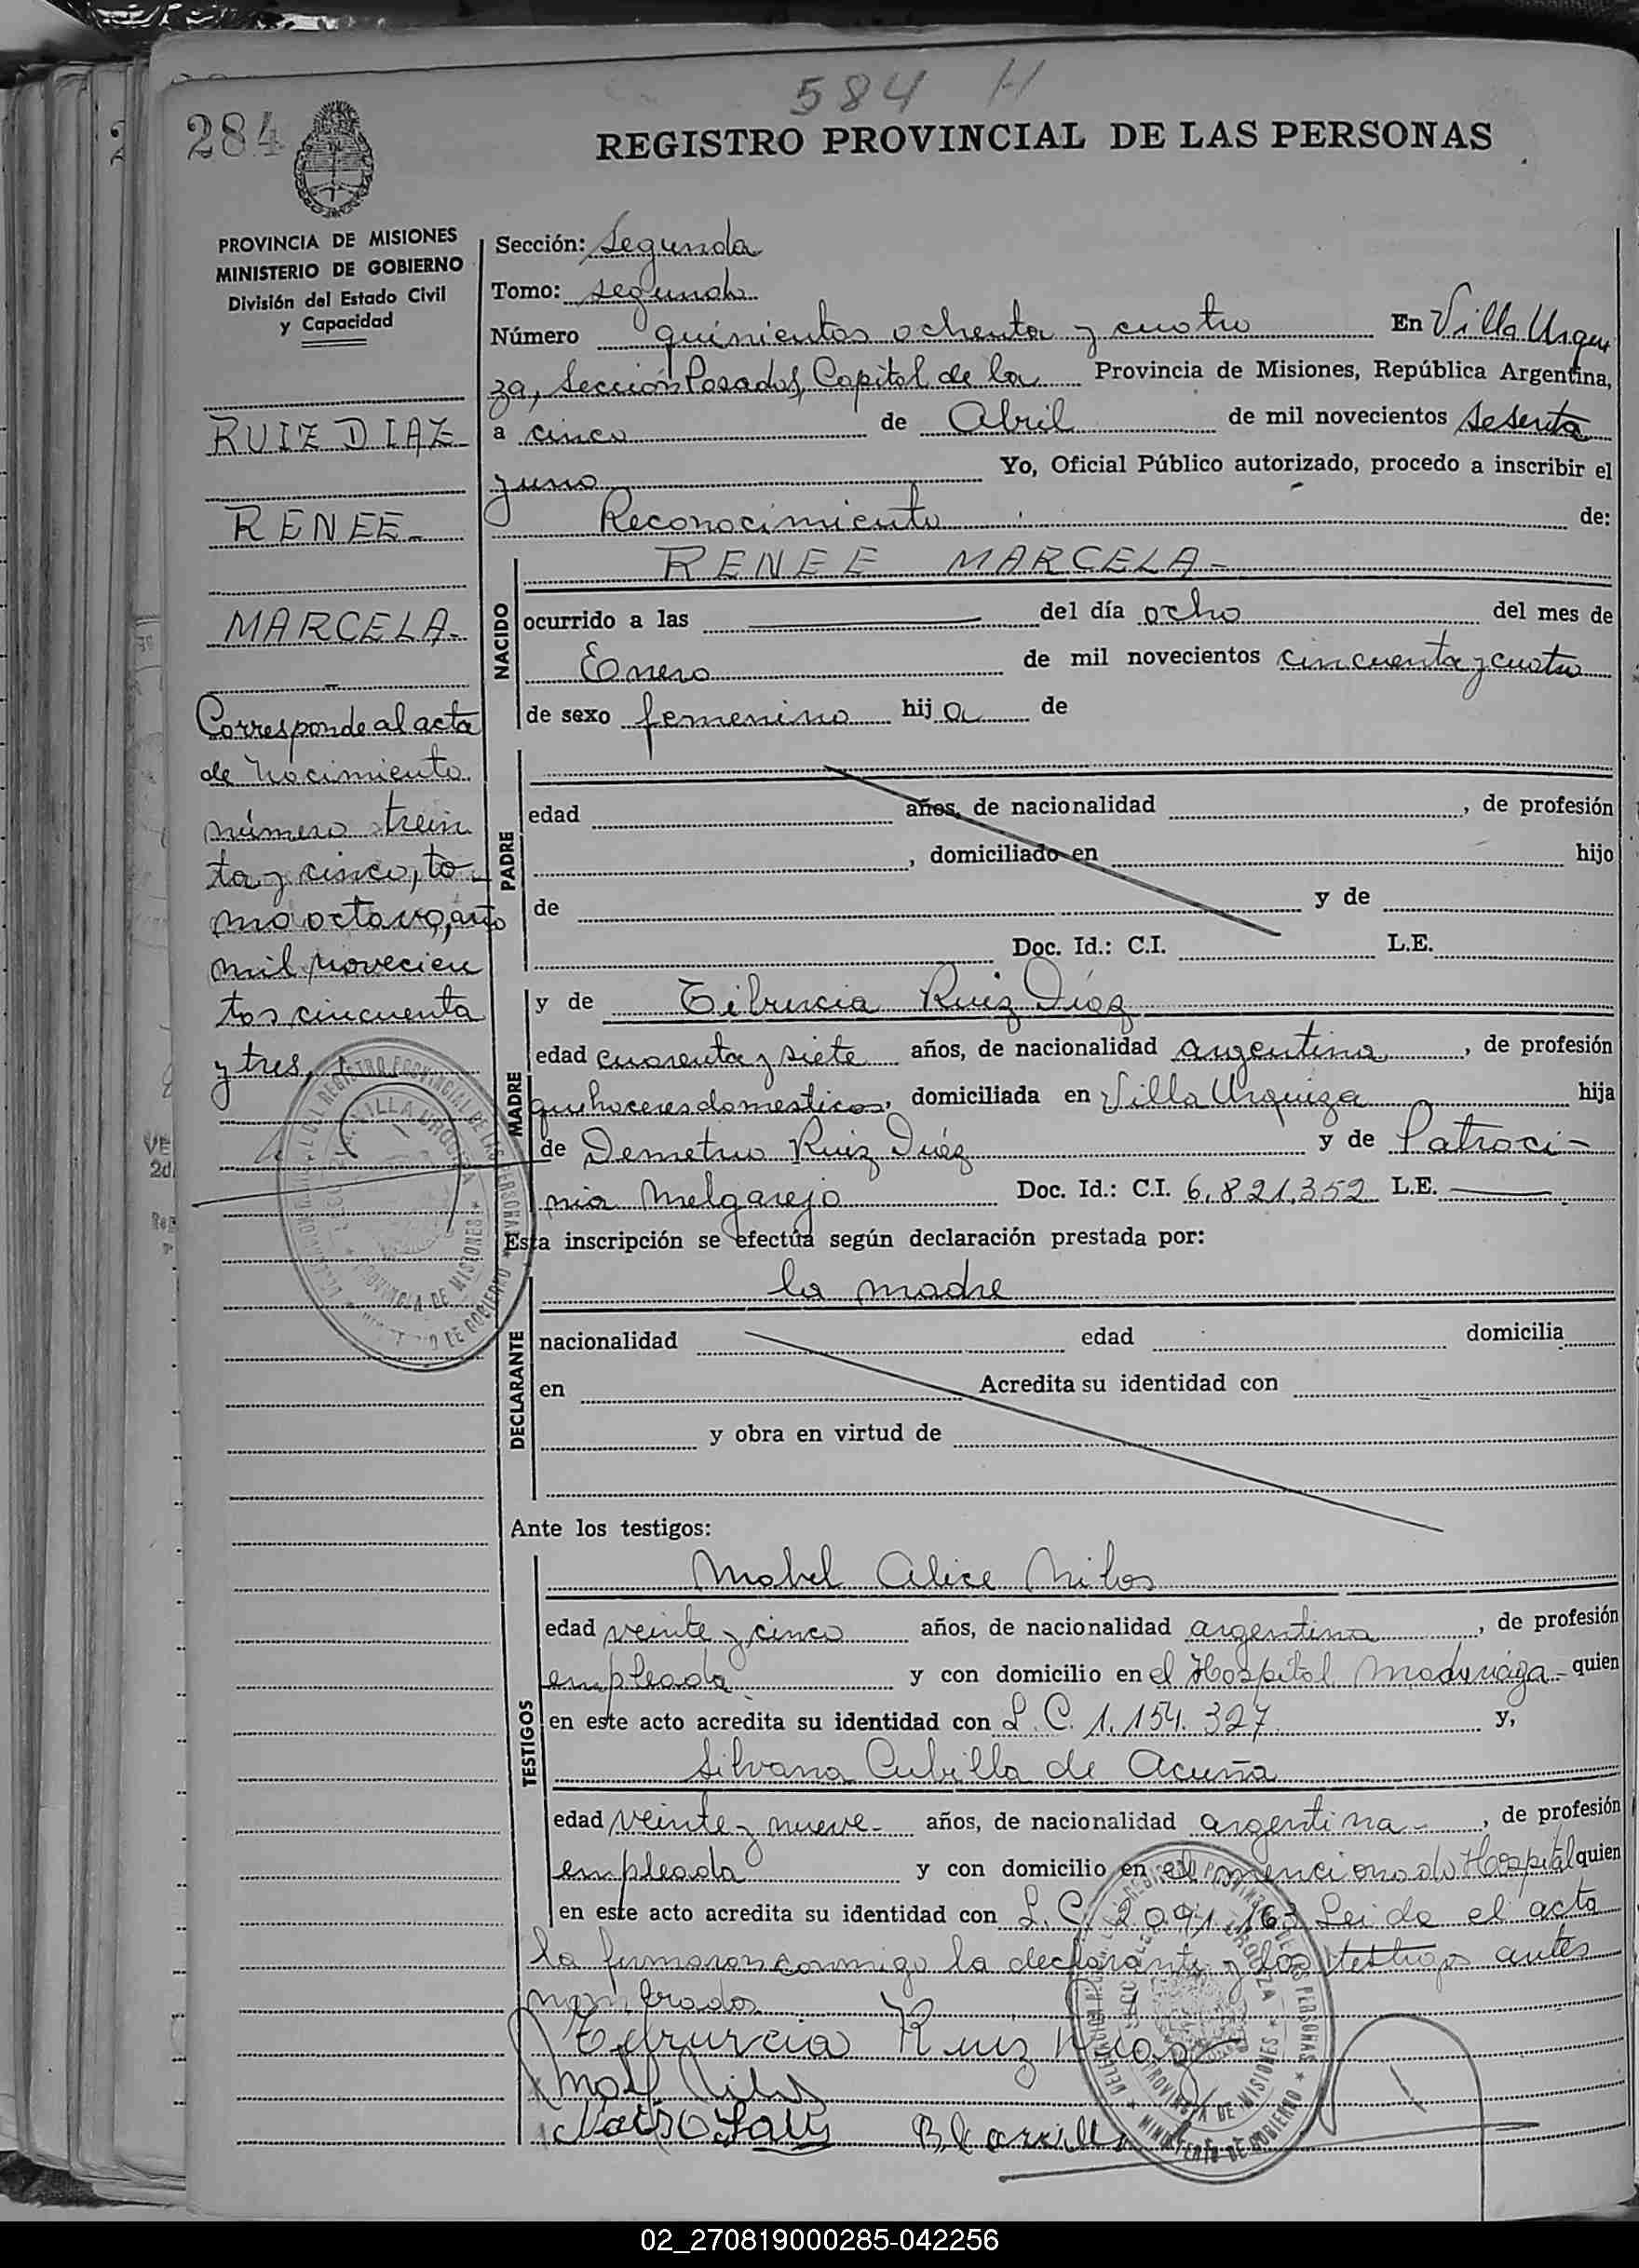 584 H
284
REGISTRO PROVINCIAL DE LAS PERSONAS
PROVINCIA DE MISIONES
MINISTERIO DE GOBIERNO
División del Estado Civil
y Capacidad
RUIZ DIAZ
RENEE
MARCELA.
Corresponde al acta
de nacimiento
número trein
ta y cinco, to-
mo octavo, año
mil novecien
tos cincuenta
y tres,
Sección: Segunda
Tomo: segundo
Número quinientos ochenta y cuatro En Villa Urqui
za, Sección Posadas, Capital de la Provincia de Misiones, República Argentina,
a cinco de Abril de mil novecientos sesenta
y uno Yo, Oficial Público autorizado, procedo a inscribir el
Reconocimiento de:
NACIDO
RENEE MARCELA-
ocurrido a las del día ocho del mes de
Enero de mil novecientos cincuenta y cuatro
de sexo femenino hija de
PADRE
edad años, de nacionalidad , de profesión
, domiciliado en hijo
de y de
Doc. Id.: C.I. L.E.
MADRE
y de Tiburcia Ruiz Díaz
edad cuarenta y siete años, de nacionalidad argentina, de profesión
quehaceres domesticos, domiciliada en Villa Urquiza hija
de Demetrio Ruiz Díaz y de Patroci-
nia Melgarejo Doc. Id.: C.I. 6.821.352 L.E.
Esta inscripción se efectúa según declaración prestada por:
la madre
DECLARANTE
nacionalidad edad domicilia
en Acredita su identidad con
y obra en virtud de
Ante los testigos:
TESTIGOS
Mabel Alice
edad veinte y cinco años, de nacionalidad argentina, de profesión
empleada y con domicilio en el Hospital Madariaga- quien
en este acto acredita su identidad con L.C. 1.154.327 y,
Silvana Cubilla de Acuña
edad veinte y nueve- años, de nacionalidad argentina-, de profesión
empleada y con domicilio en el mencionado Hospital quien
en este acto acredita su identidad con L.C. 2.091.163 Leida el acta
la firmaron conmigo la declarante y los testigos antes
nombrados
Ruiz
02_270819000285-042256